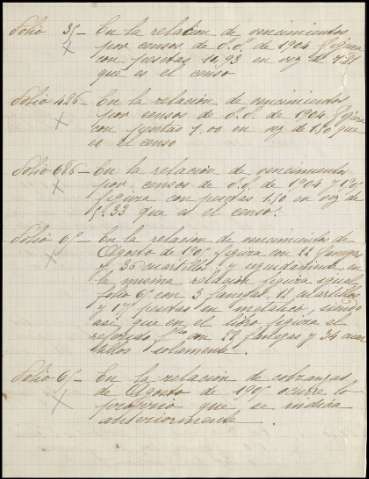 Folio 35 — En la relación de vencimientos
por censos de O.O. de 1904 figura
con pesetas 10,93 en vez de
que es el censo
Folio 426 — En la relación de vencimientos
por censos de O.O. de 1904 figura
con pesetas 1,00 en vez de 1,50 que
es el censo
Folio 686 — En la relación de vencimientos
por censos de O.O. de 1904
figura con pesetas 1,50 en vez de
que es el censo.
Folio 6º — En la relación de vencimientos de
Agosto de figura con 11 fanegas
y 36 cuartillos y igualmente en
la misma relación figura
folio 6º con 3 fanegas, 12 cuartillos
y pesetas en metálico, siendo
así que en el libro figura el
con 22 fanegas y 34 cuar
tillos solamente.
Folio 6 — En la relación de cobranzas
de Agosto de ocurre lo
propio que se indica
anteriormente